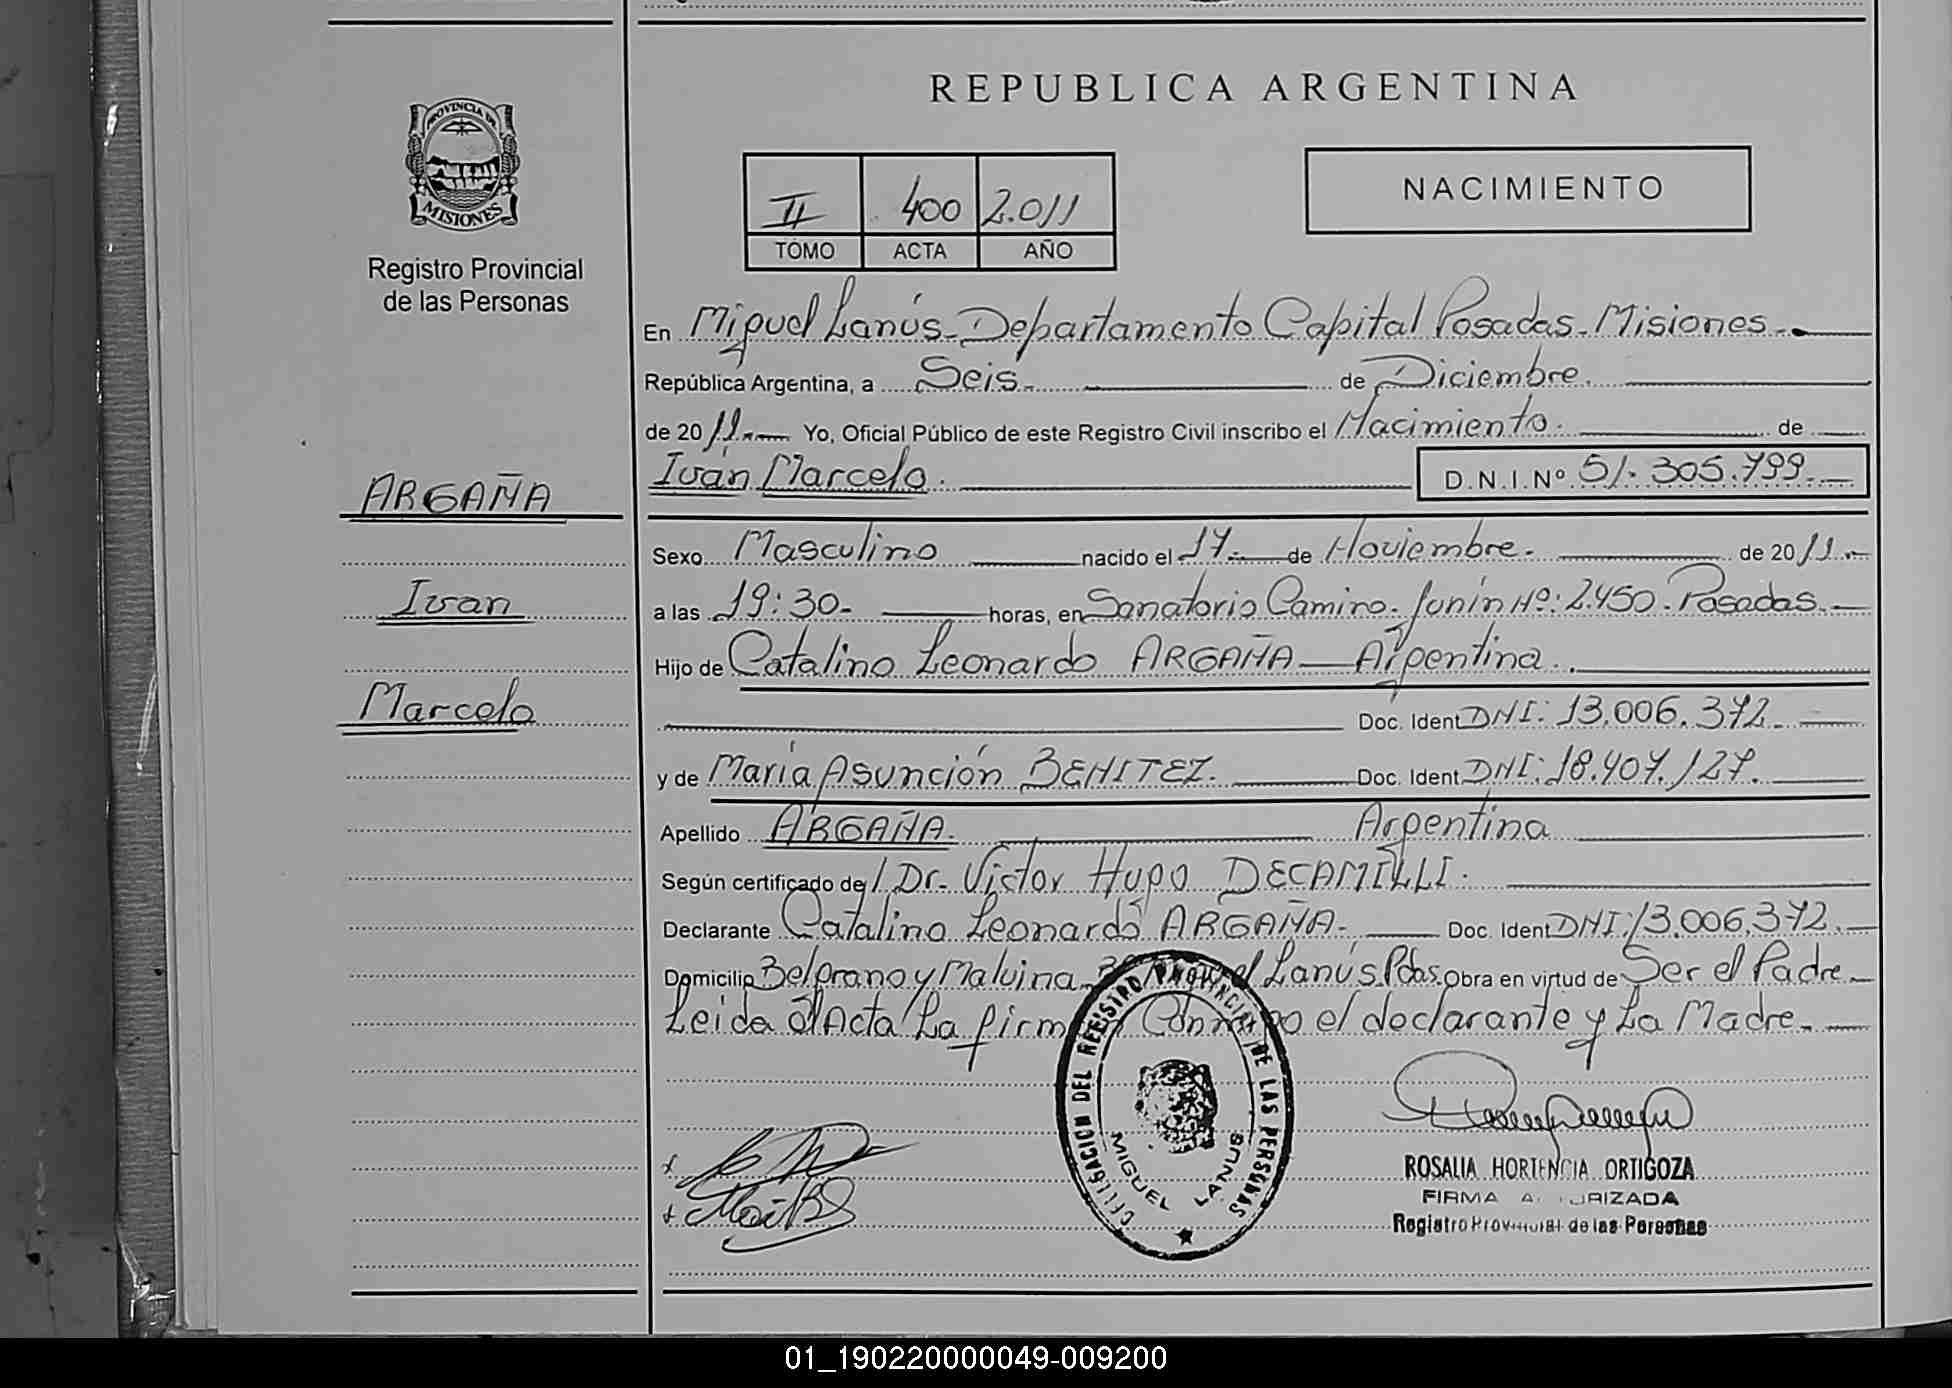 REPUBLICA ARGENTINA
PROVINCIA DE
MISIONES
Registro Provincial
de las Personas
II 400 2.011
TOMO ACTA AÑO
NACIMIENTO
En Miguel Lanús - Departamento Capital Posadas - Misiones.-
República Argentina, a Seis.- de Diciembre.
de 2011.- Yo, Oficial Público de este Registro Civil inscribo el Nacimiento. de
Iván Marcelo. D.N.I.Nº 51.305.799.-
ARGAÑA
Ivan
Marcelo
Sexo Masculino nacido el 17.- de Noviembre.- de 2011.-
a las 19:30.- horas, en Sanatorio Camino. Junín Nº: 2.450. Posadas.-
Hijo de Catalino Leonardo ARGAÑA — Argentina.
Doc. Ident DNI: 13.006.372.
y de María Asunción BENITEZ. Doc. Ident DNI: 18.407.127.
Apellido ARGAÑA. Argentina
Según certificado de/l Dr. Víctor Hugo DECAMILLI.
Declarante Catalino Leonardo ARGAÑA. Doc. Ident DNI: 13.006.372.
Domicilio Belgrano y Malvina Lanús. Pdas. Obra en virtud de Ser el Padre.
Leida el Acta La firman Conmigo el declarante y La Madre.
DELEGACION DEL REGISTRO PROVINCIAL DE LAS PERSONAS
MIGUEL LANUS
ROSALIA HORTENCIA ORTIGOZA
FIRMA AUTORIZADA
Registro Provincial de las Personas
01_190220000049-009200